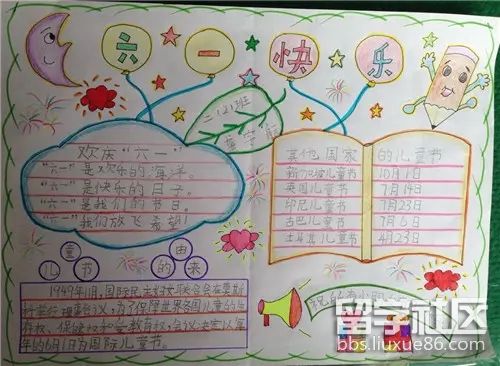 六一快乐
二(2)班
欢庆“六一”
“六一”是欢乐的海洋。
“六一”是快乐的日子。
“六一”是我们的节日。
“六一”我们放飞希望!
其他国家的儿童节
新加坡儿童节 10月1日
英国儿童节 7月14日
印尼儿童节 7月23日
古巴儿童节 7月6日
土耳其儿童节 4月23日
儿童节的由来
1949年11月,国际民主妇女联合会在莫斯
科举行理事会议,为了保障世界各国儿童的生
存权、保健权和受教育权,会议决定以每
年的6月1日为国际儿童节。
留学社区
bbs.liuxue86.com